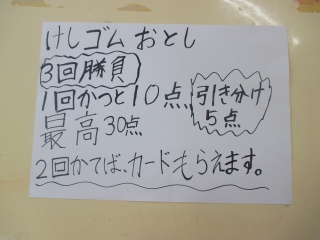 けしゴム おとし
3回勝負
1回かつと10点
引き分け
5点
最高30点
2回かてば、カードもらえます。